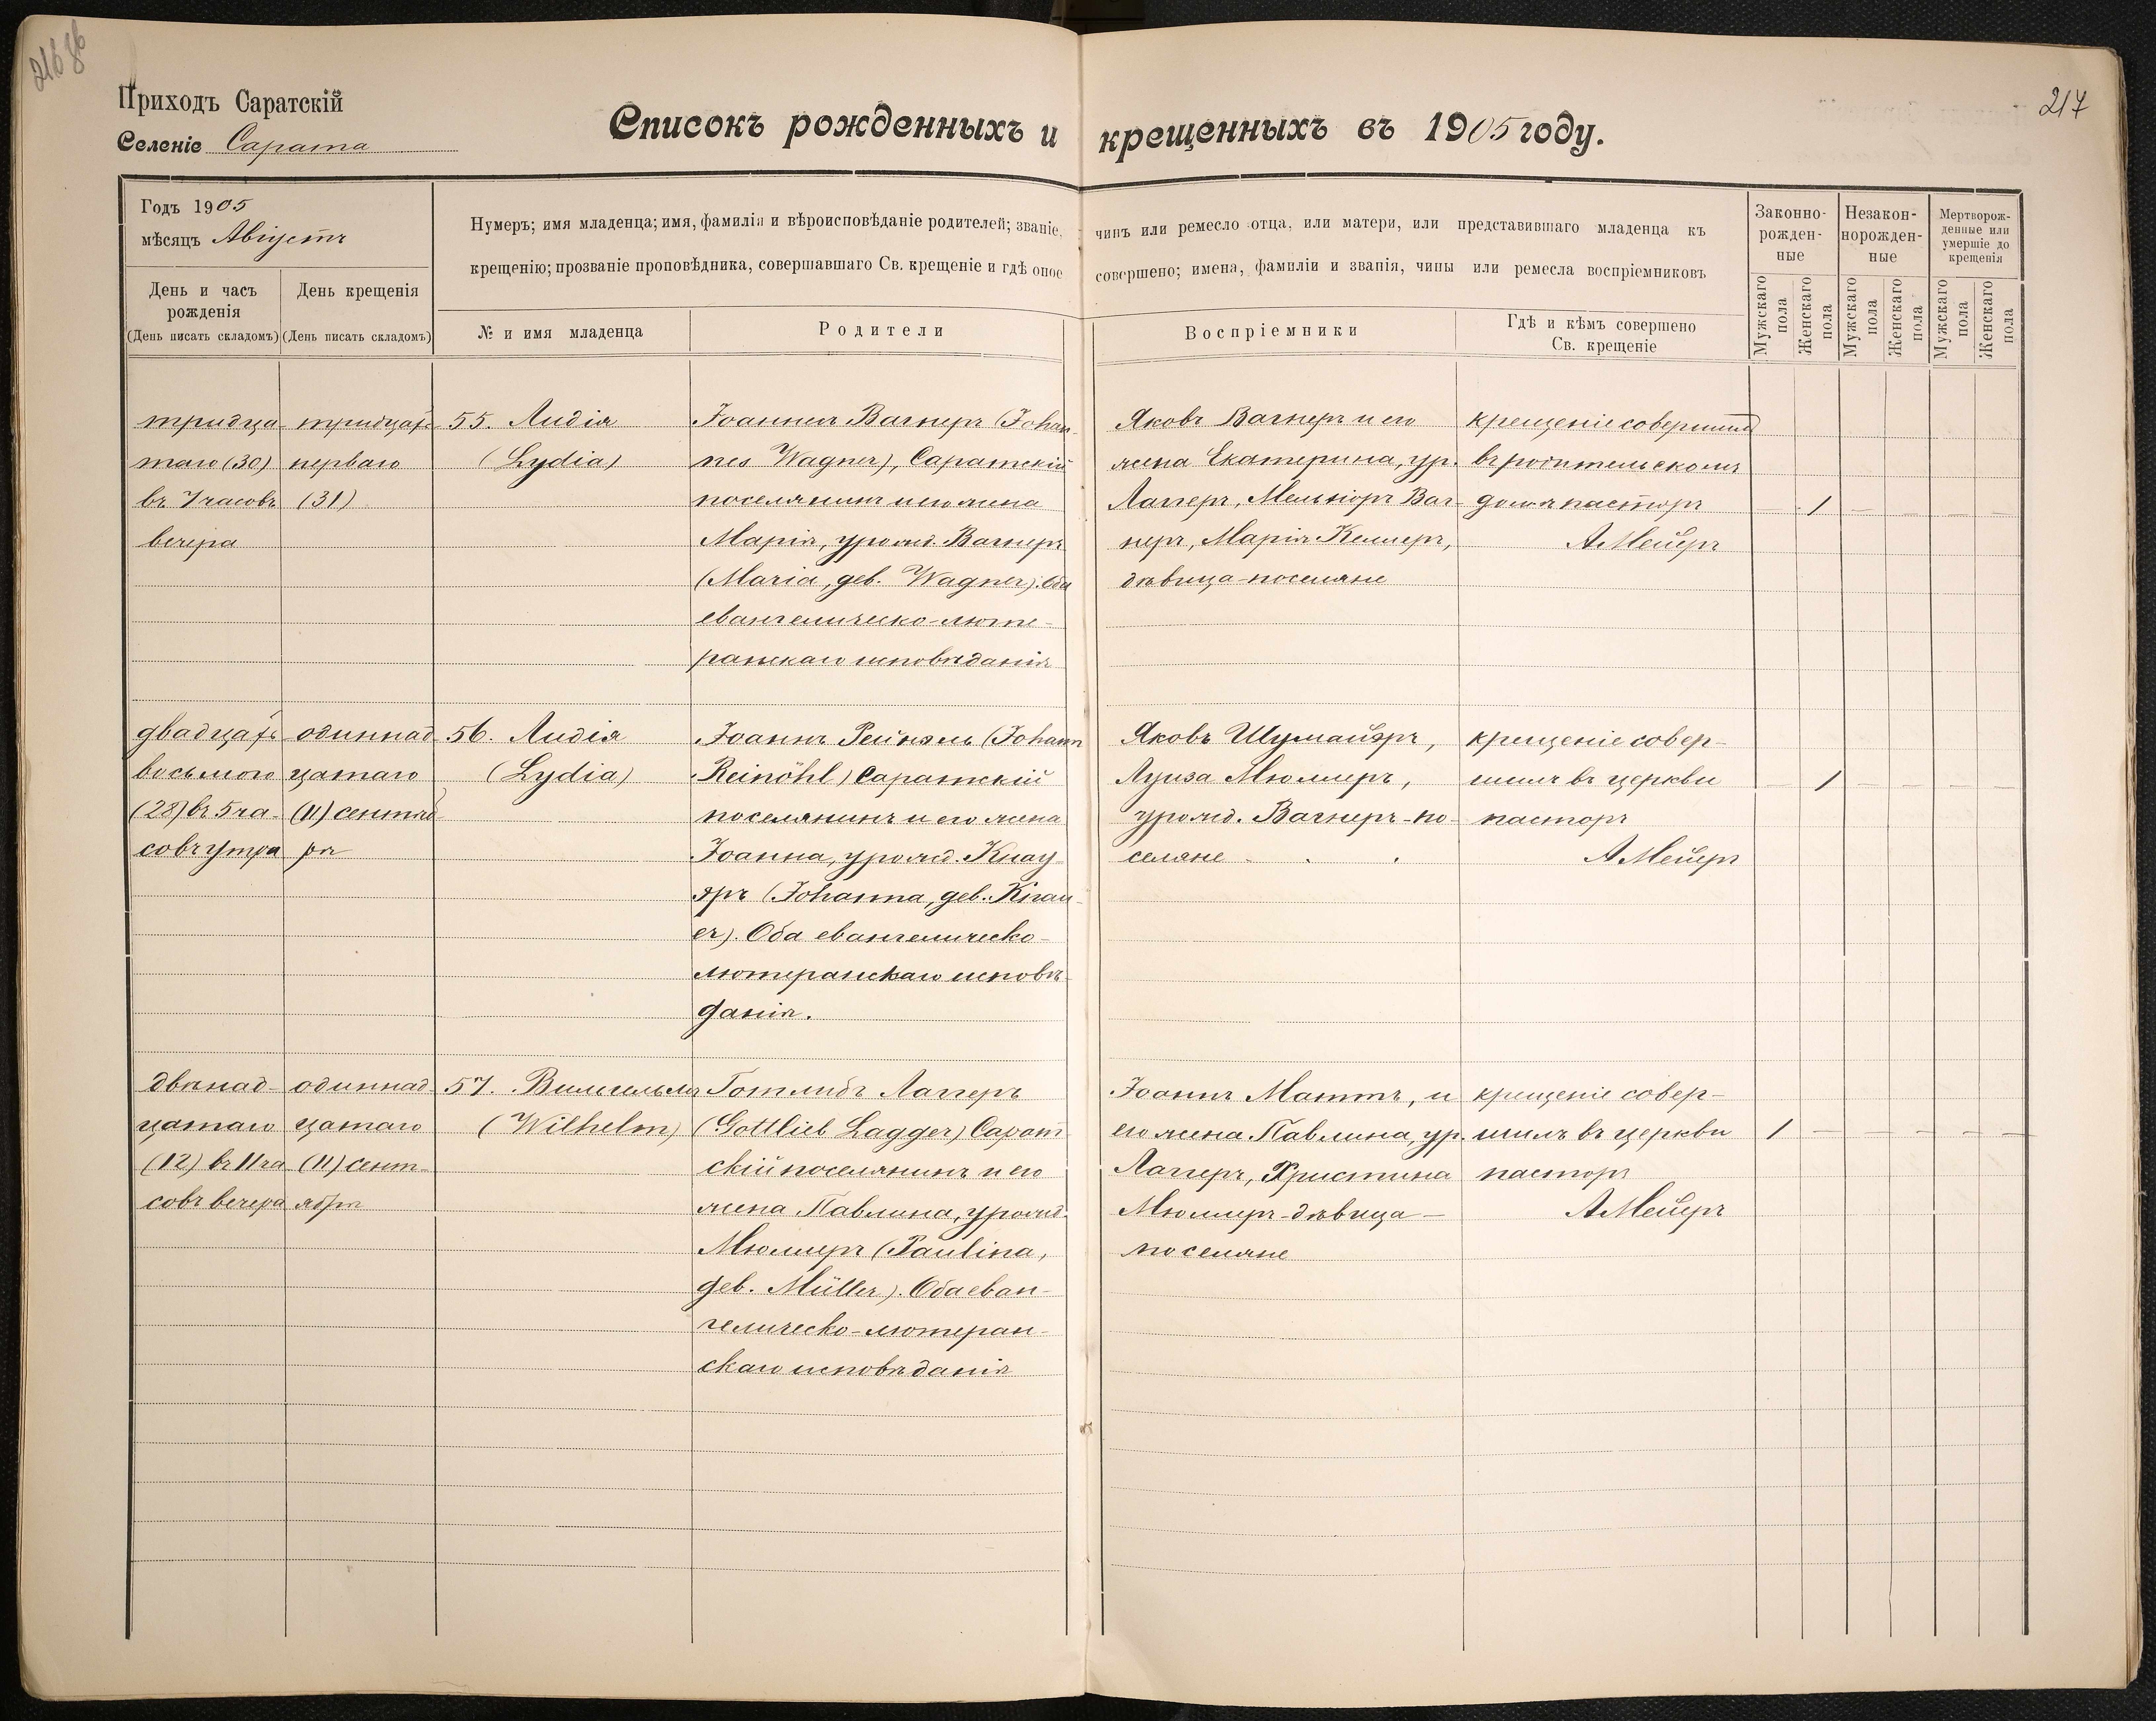 217
Приходъ Саратскій
Селеніе Сарата
Списокъ рожденныхъ и крещенныхъ въ 1905 году.
Годъ 1905
мѣсяцъ Августъ
День и часъ
рожденія
(День писать складомъ)
День крещенія
(День писать складомъ)
Нумеръ; имя младенца; имя, фамилія и вѣроисповѣданіе родителей; званіе, чинъ или ремесло отца, или матери, или представившаго младенца къ
крещенію; прозваніе проповѣдника, совершавшаго Св. крещеніе и гдѣ оное совершено; имена, фамиліи и званія, чины или ремесла воспріемниковъ
№ и имя младенца
Родители
Воспріемники
Гдѣ и кѣмъ совершено
Св. крещеніе
Законно-
рожден-
ные
Незакон-
норожден-
ные
Мертворож-
денные или
умершіе до
крещенія
Мужскаго
пола
Женскаго
пола
Мужскаго
пола
Женскаго
пола
Мужскаго
пола
Женскаго
пола
тридца-
таго (30)
въ 7 часовъ
вечера
тридцать
перваго
(31)
55. Лидія
(Lydia)
Іоаннесъ Вагнеръ (Johan-
nes Wagner), Саратскій
поселянинъ и его жена
Марія, урожд. Вагнеръ
(Maria, geb. Wagner). Оба
евангелическо-люте-
ранскаго исповѣданія
Яковъ Вагнеръ и его
жена Екатерина, ур.
Лаггеръ, Мельхіоръ Ваг-
неръ, Марія Келлеръ,
дѣвица - поселяне
крещеніе совершилъ
въ родительскомъ
домѣ пасторъ
А Мейеръ
1
двадцать
восьмого
(28) въ 5 ча-
совъ утра
одиннад-
цатаго
(11) сентяб-
ря
56. Лидія
(Lydia)
Іоаннъ Рейнэль (Johann
Reinöhl) Саратскій
поселянинъ и его жена
Іоанна, урожд. Кнау-
эръ (Johanna, geb. Knau-
er). Оба евангелическо-
лютеранскаго исповѣ-
данія.
Яковъ Шумайэръ,
Луиза Мюллеръ,
урожд. Вагнеръ - по-
селяне
крещеніе совер-
шилъ въ церкви
пасторъ
А Мейеръ
1
двѣнад-
цатаго
(12) въ 11 ча
совъ вечера
одиннад-
цатаго
(11) сент-
ября
57. Вильгельмъ
(Wilhelm)
Готлибъ Лаггеръ
(Gottlieb Lagger) Сарат
скій поселянинъ и его
жена Павлина, урожд.
Мюллеръ (Paulina,
geb. Müller). Оба еван-
гелическо-лютеран-
скаго исповѣданія
Іоаннъ Маттъ, и
его жена Павлина, ур.
Лаггеръ, Христина
Мюллеръ - дѣвица -
поселяне
крещеніе совер-
шилъ въ церкви
пасторъ
А Мейеръ
1